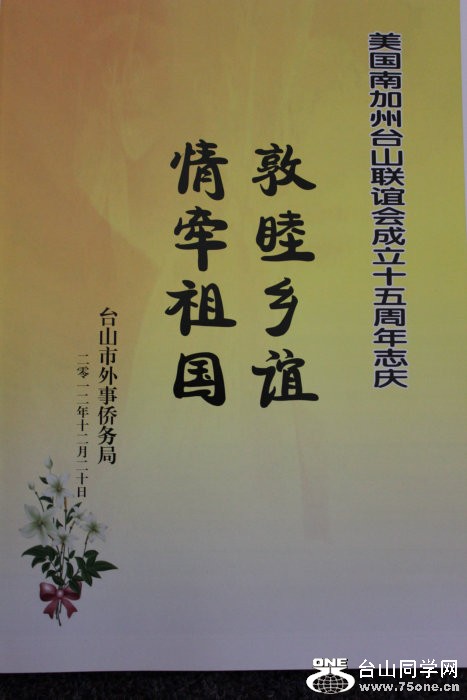 美国南加州台山联谊会成立十五周年志庆
敦睦乡谊
情牵祖国
台山市外事侨务局
二零一二年十二月二十日
ONE
台山同学网
www.75one.cn